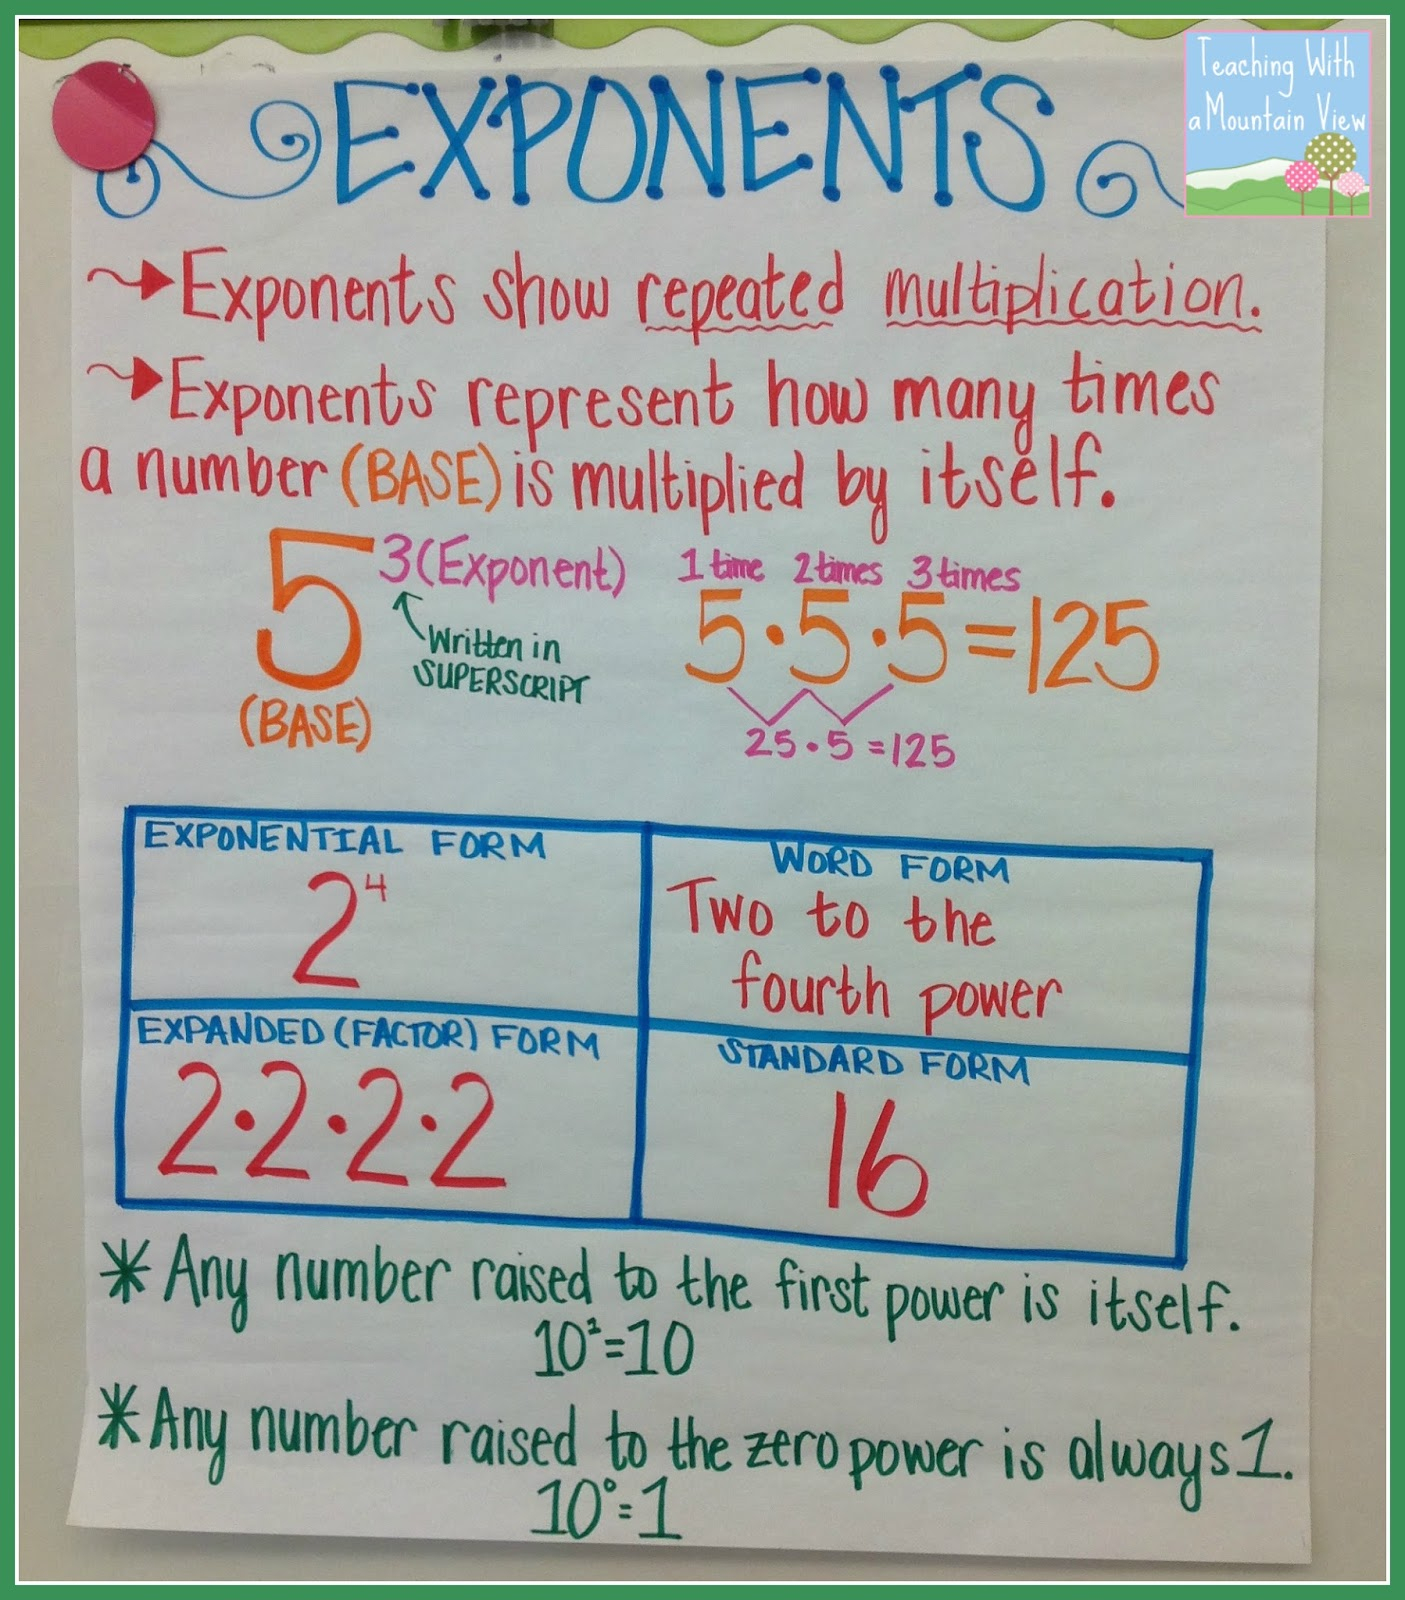 Teaching With
a Mountain View
EXPONENTS
Exponents show repeated multiplication.
Exponents represent how many times
a number (BASE) is multiplied by itself.
5³ (Exponent)
Written in
SUPERSCRIPT
(BASE)
1 time 2 times 3 times
5·5·5=125
25·5=125
EXPONENTIAL FORM
2⁴
WORD FORM
Two to the
fourth power
EXPANDED (FACTOR) FORM
2·2·2·2
STANDARD FORM
16
* Any number raised to the first power is itself.
10¹=10
* Any number raised to the zero power is always 1.
10⁰=1